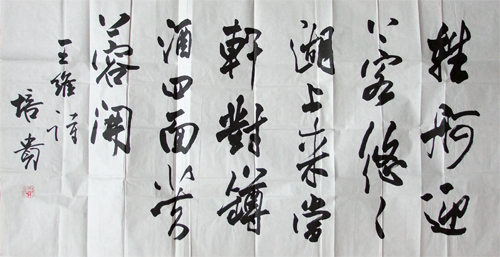 輕舸迎
上客悠々
湖上来當
軒對罇
酒四面芙
蓉開
王維詩
培貴